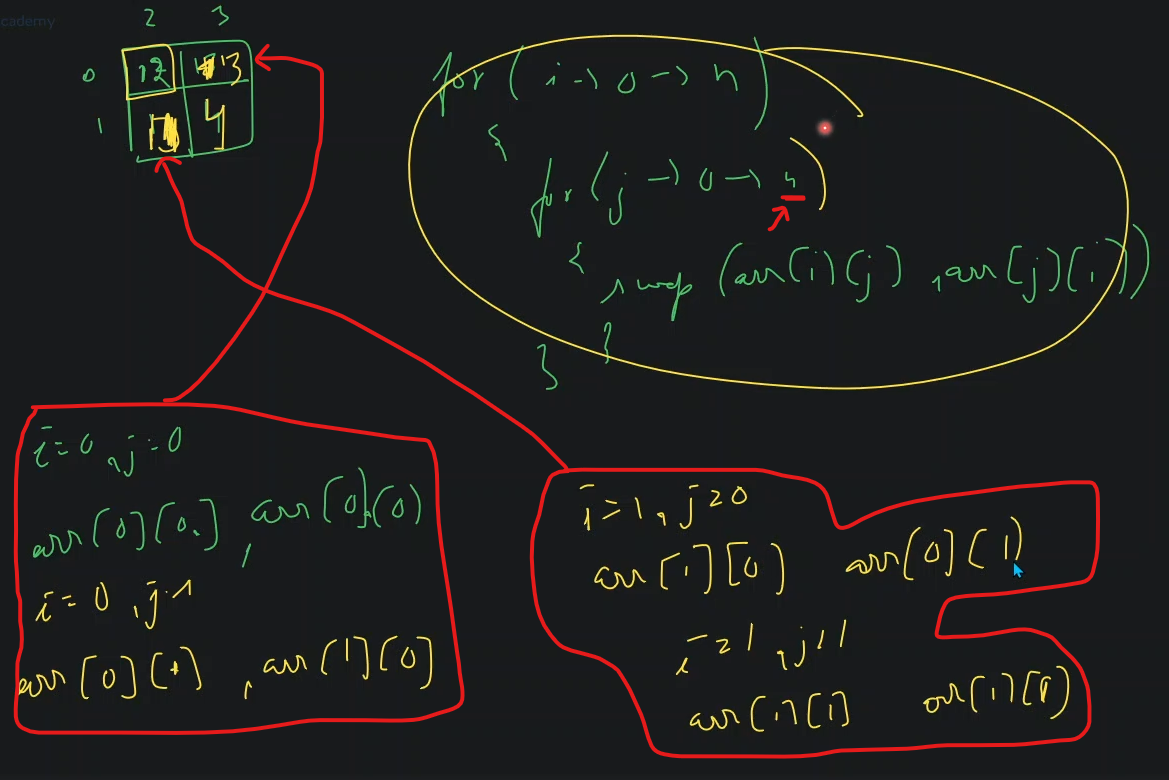 cademy
2 3
0 12 3
1 4
for ( i → 0 → n )
{
for ( j → 0 → n )
{
swap (arr(i)(j) , arr[j)(i))
}
}
i = 0 , j = 0
arr[0][0] , arr[0](0)
i = 0 , j 1
arr[0](1) , arr(1)[0]
i = 1 , j = 0
arr[1][0] arr(0](1)
i = 1 , j = 1
arr[1)[1] arr[1)[1)